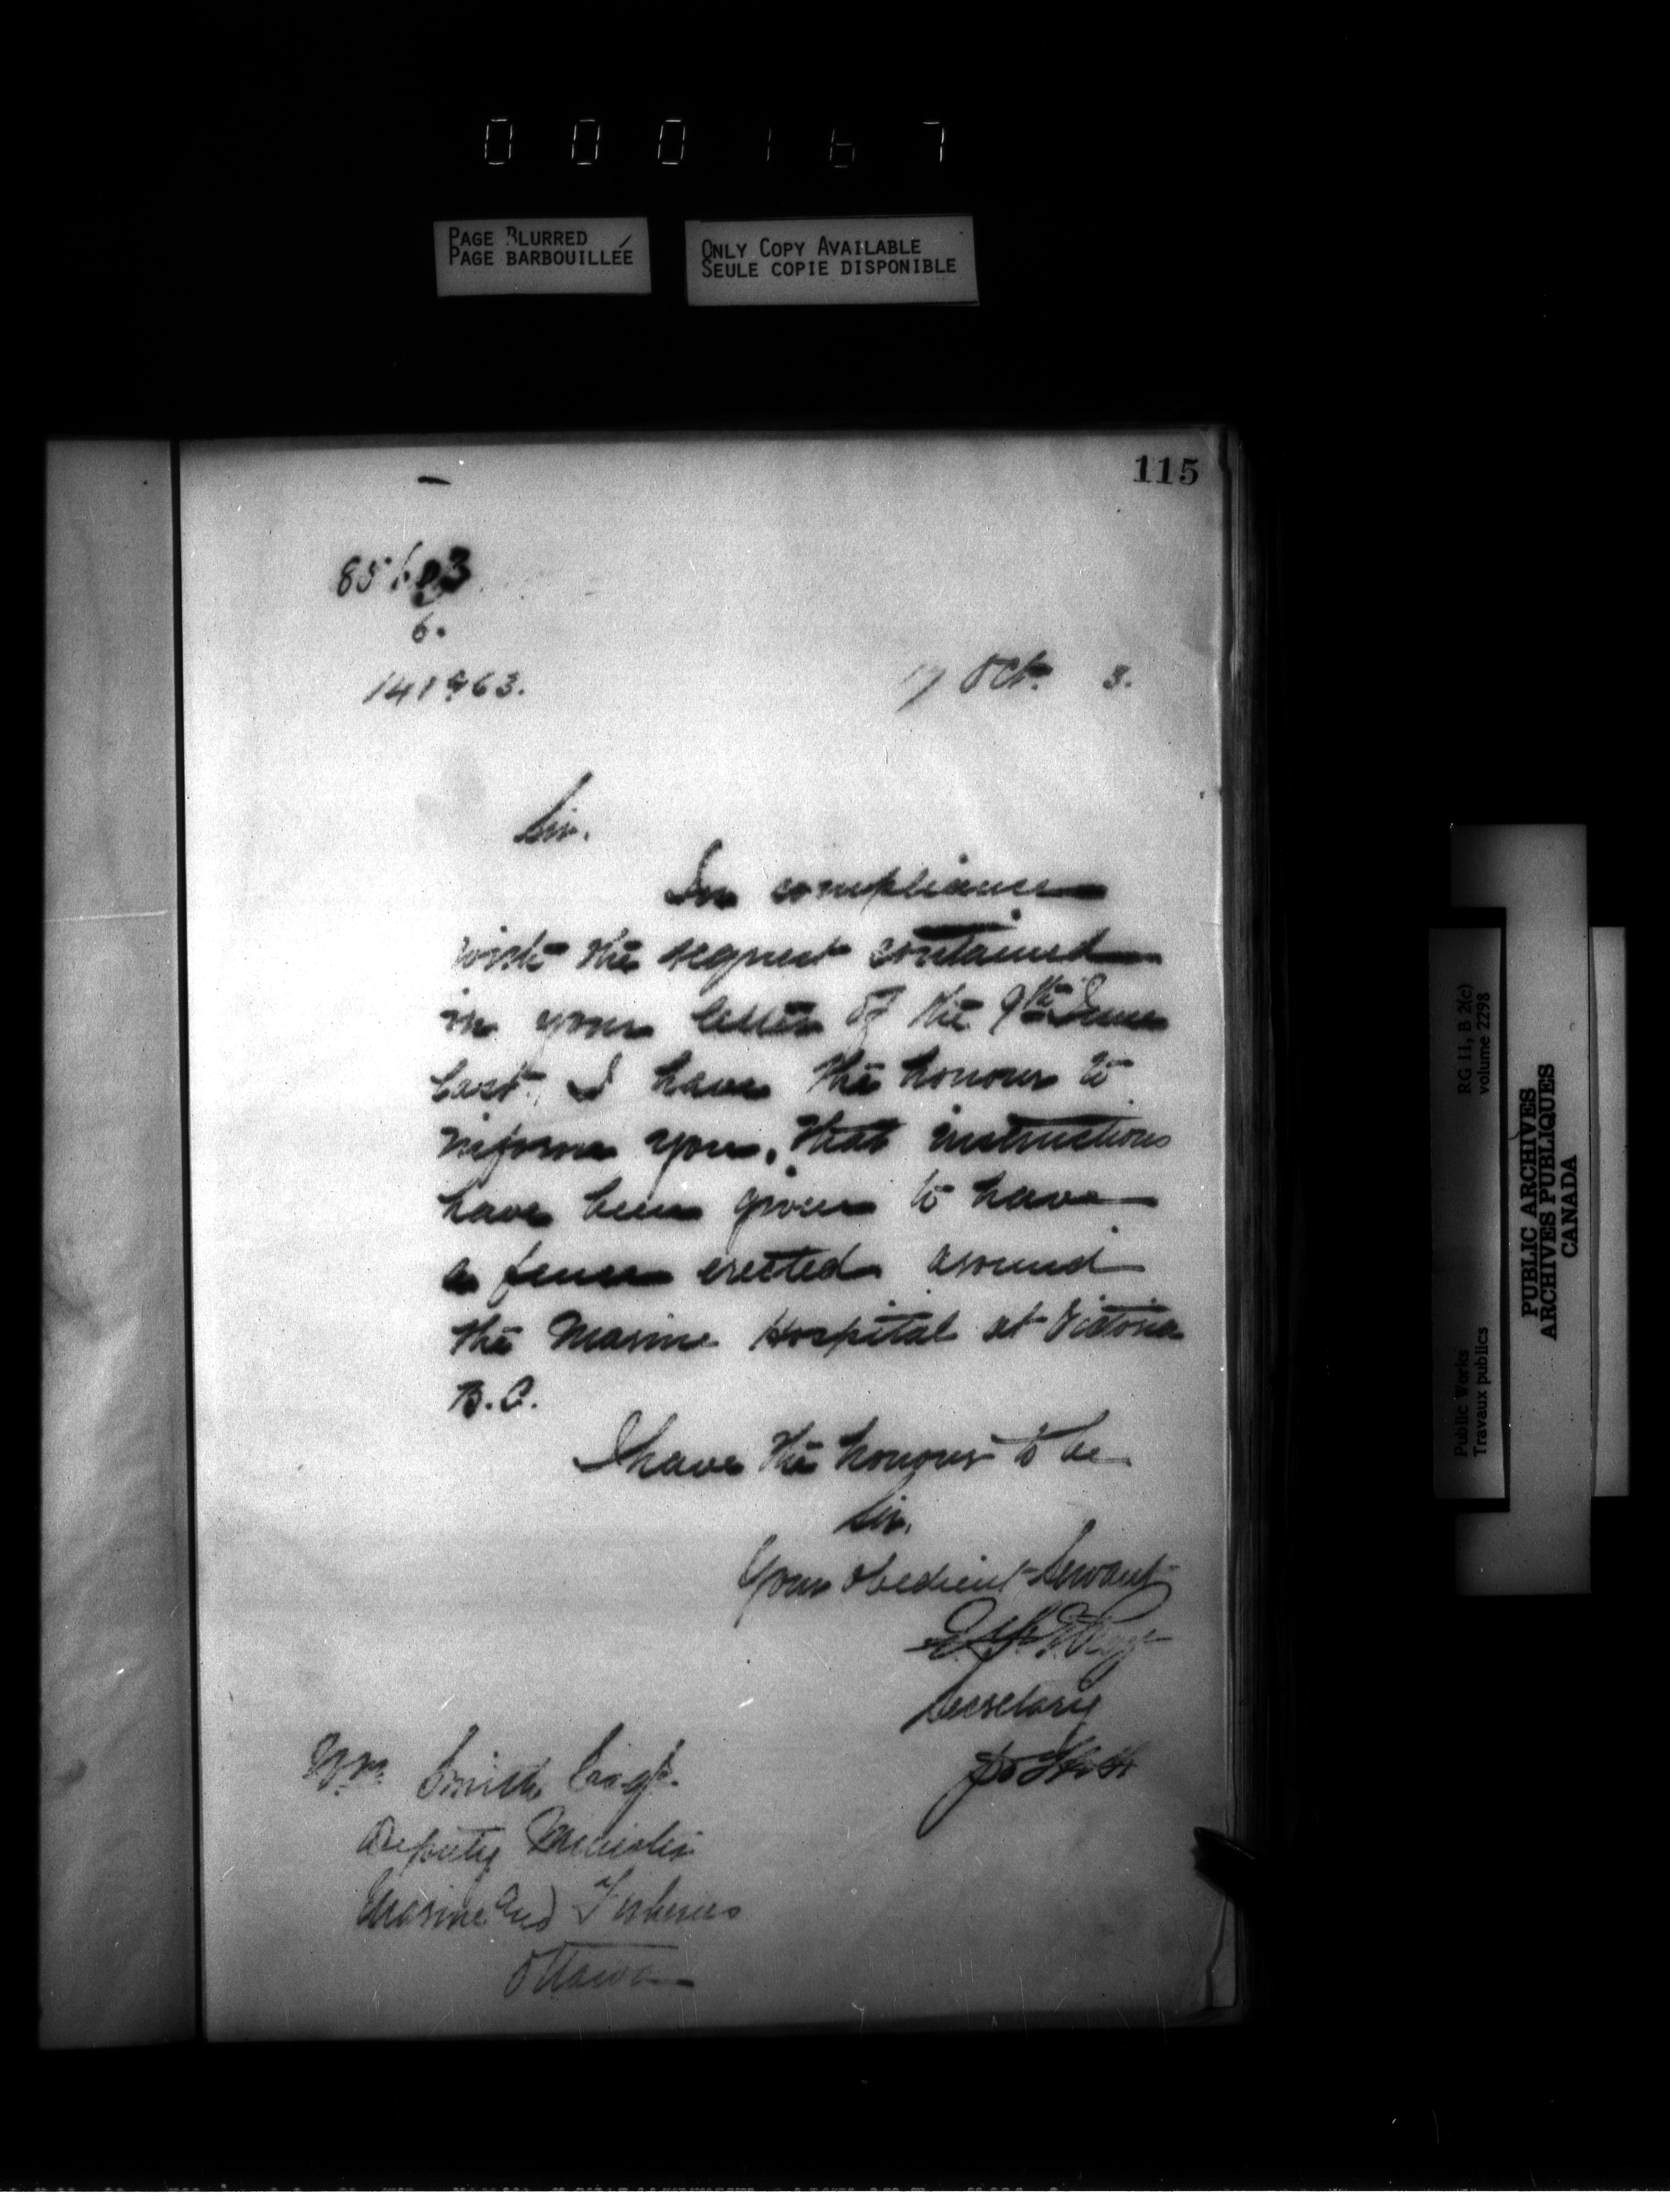 000167
PAGE BLURRED
PAGE BARBOUILLÉE
ONLY COPY AVAILABLE
SEULE COPIE DISPONIBLE
115
6.
17 Oct. 3.
Sir.
In compliance
with the request contained
in your letter of the 9th June
last, I have the honour to
inform you, that instructions
have been given to have
a fence erected around
the Marine Hospital at Victoria
B.C.
I have the honour to be
Sir,
Your obedient Servant
Secretary
Wm Smith Esqr.
Deputy Minister
Marine and Fisheries
Ottawa
RG 11, B 2(c)
volume 2298
Public Works
Travaux publics
PUBLIC ARCHIVES
ARCHIVES PUBLIQUES
CANADA